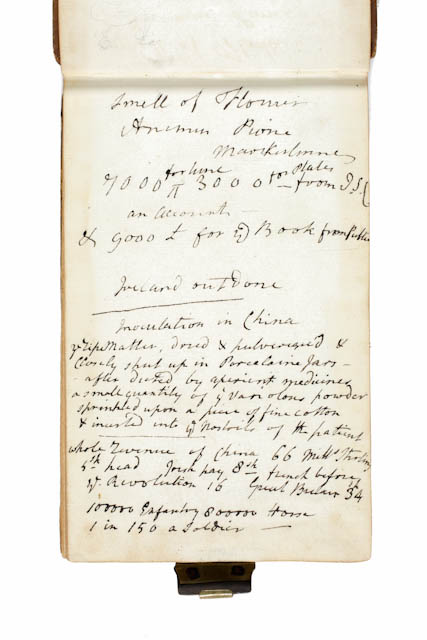 Smell of Flowers
Pione
7000 for time 3000 for Plates from J. S.
an account
& 9000 £ for ye Book from Publ
Ireland outdone
Inoculation in China
ye ripe Matter, dried & pulverised &
Closely shut up in Porcelaine Jars -
- after dieted by aperient medicines
a small quantity of ye Variolous powder
sprinkled upon a piece of fine cotton
& inserted into ye Nostrils of the patient
whole Revenue of China 66 Mills Sterling
5sh head Irish pay 8sh french before
ye Revolution 16 Great Britain 34
100000 Enfantry 800000 Horse
1 in 150 a Soldier —